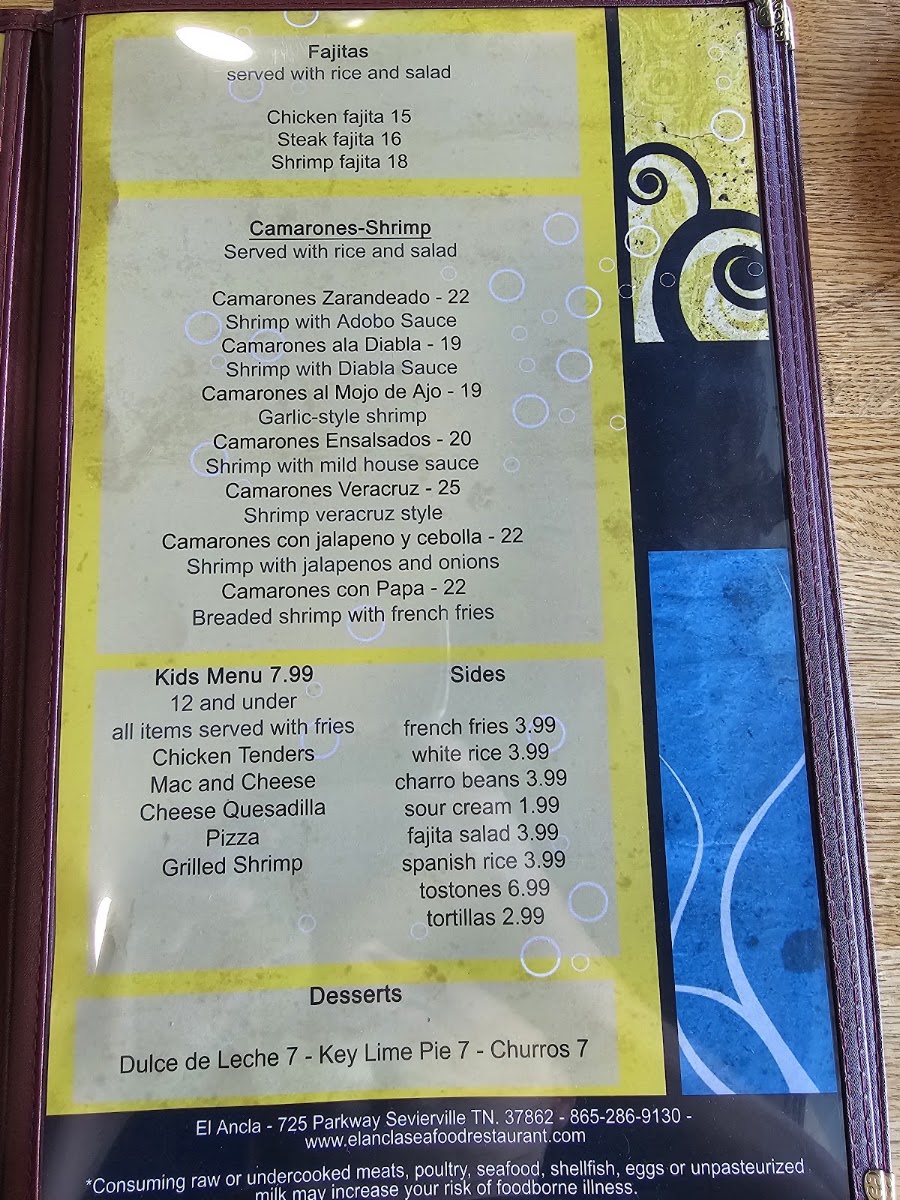 Fajitas
served with rice and salad
Chicken fajita 15
Steak fajita 16
Shrimp fajita 18
Camarones-Shrimp
Served with rice and salad
Camarones Zarandeado - 22
Shrimp with Adobo Sauce
Camarones ala Diabla - 19
Shrimp with Diabla Sauce
Camarones al Mojo de Ajo - 19
Garlic-style shrimp
Camarones Ensalsados - 20
Shrimp with mild house sauce
Camarones Veracruz - 25
Shrimp veracruz style
Camarones con jalapeno y cebolla - 22
Shrimp with jalapenos and onions
Camarones con Papa - 22
Breaded shrimp with french fries
Kids Menu 7.99
12 and under
all items served with fries
Chicken Tenders
Mac and Cheese
Cheese Quesadilla
Pizza
Grilled Shrimp
Sides
french fries 3.99
white rice 3.99
charro beans 3.99
sour cream 1.99
fajita salad 3.99
spanish rice 3.99
tostones 6.99
tortillas 2.99
Desserts
Dulce de Leche 7 - Key Lime Pie 7 - Churros 7
El Ancla - 725 Parkway Sevierville TN. 37862 - 865-286-9130 -
www.elanclaseafoodrestaurant.com
*Consuming raw or undercooked meats, poultry, seafood, shellfish, eggs or unpasteurized
milk may increase your risk of foodborne illness.